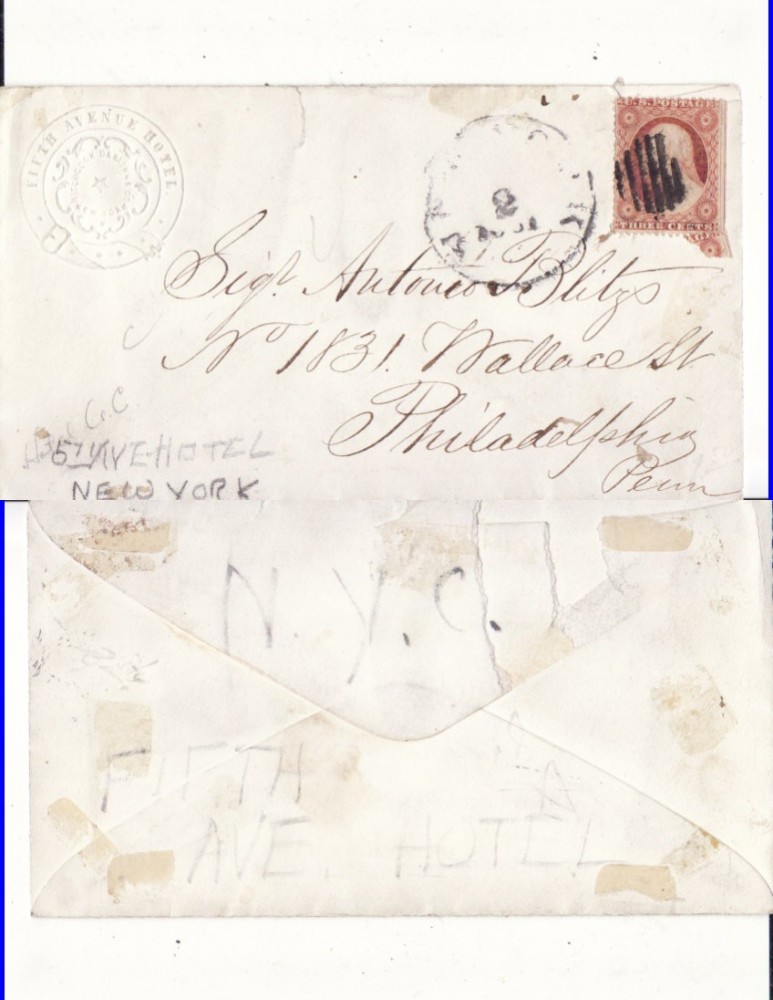 FIFTH AVENUE HOTEL
NEW YORK
U.S. POSTAGE
THREE CENTS
2
Sigr. Antonio Blitz
No 1831. Wallace St
Philadelphia
Penn
G.C.
5th AVE-HOTEL
NEW YORK
N.Y.C.
FIFTH
AVE. HOTEL